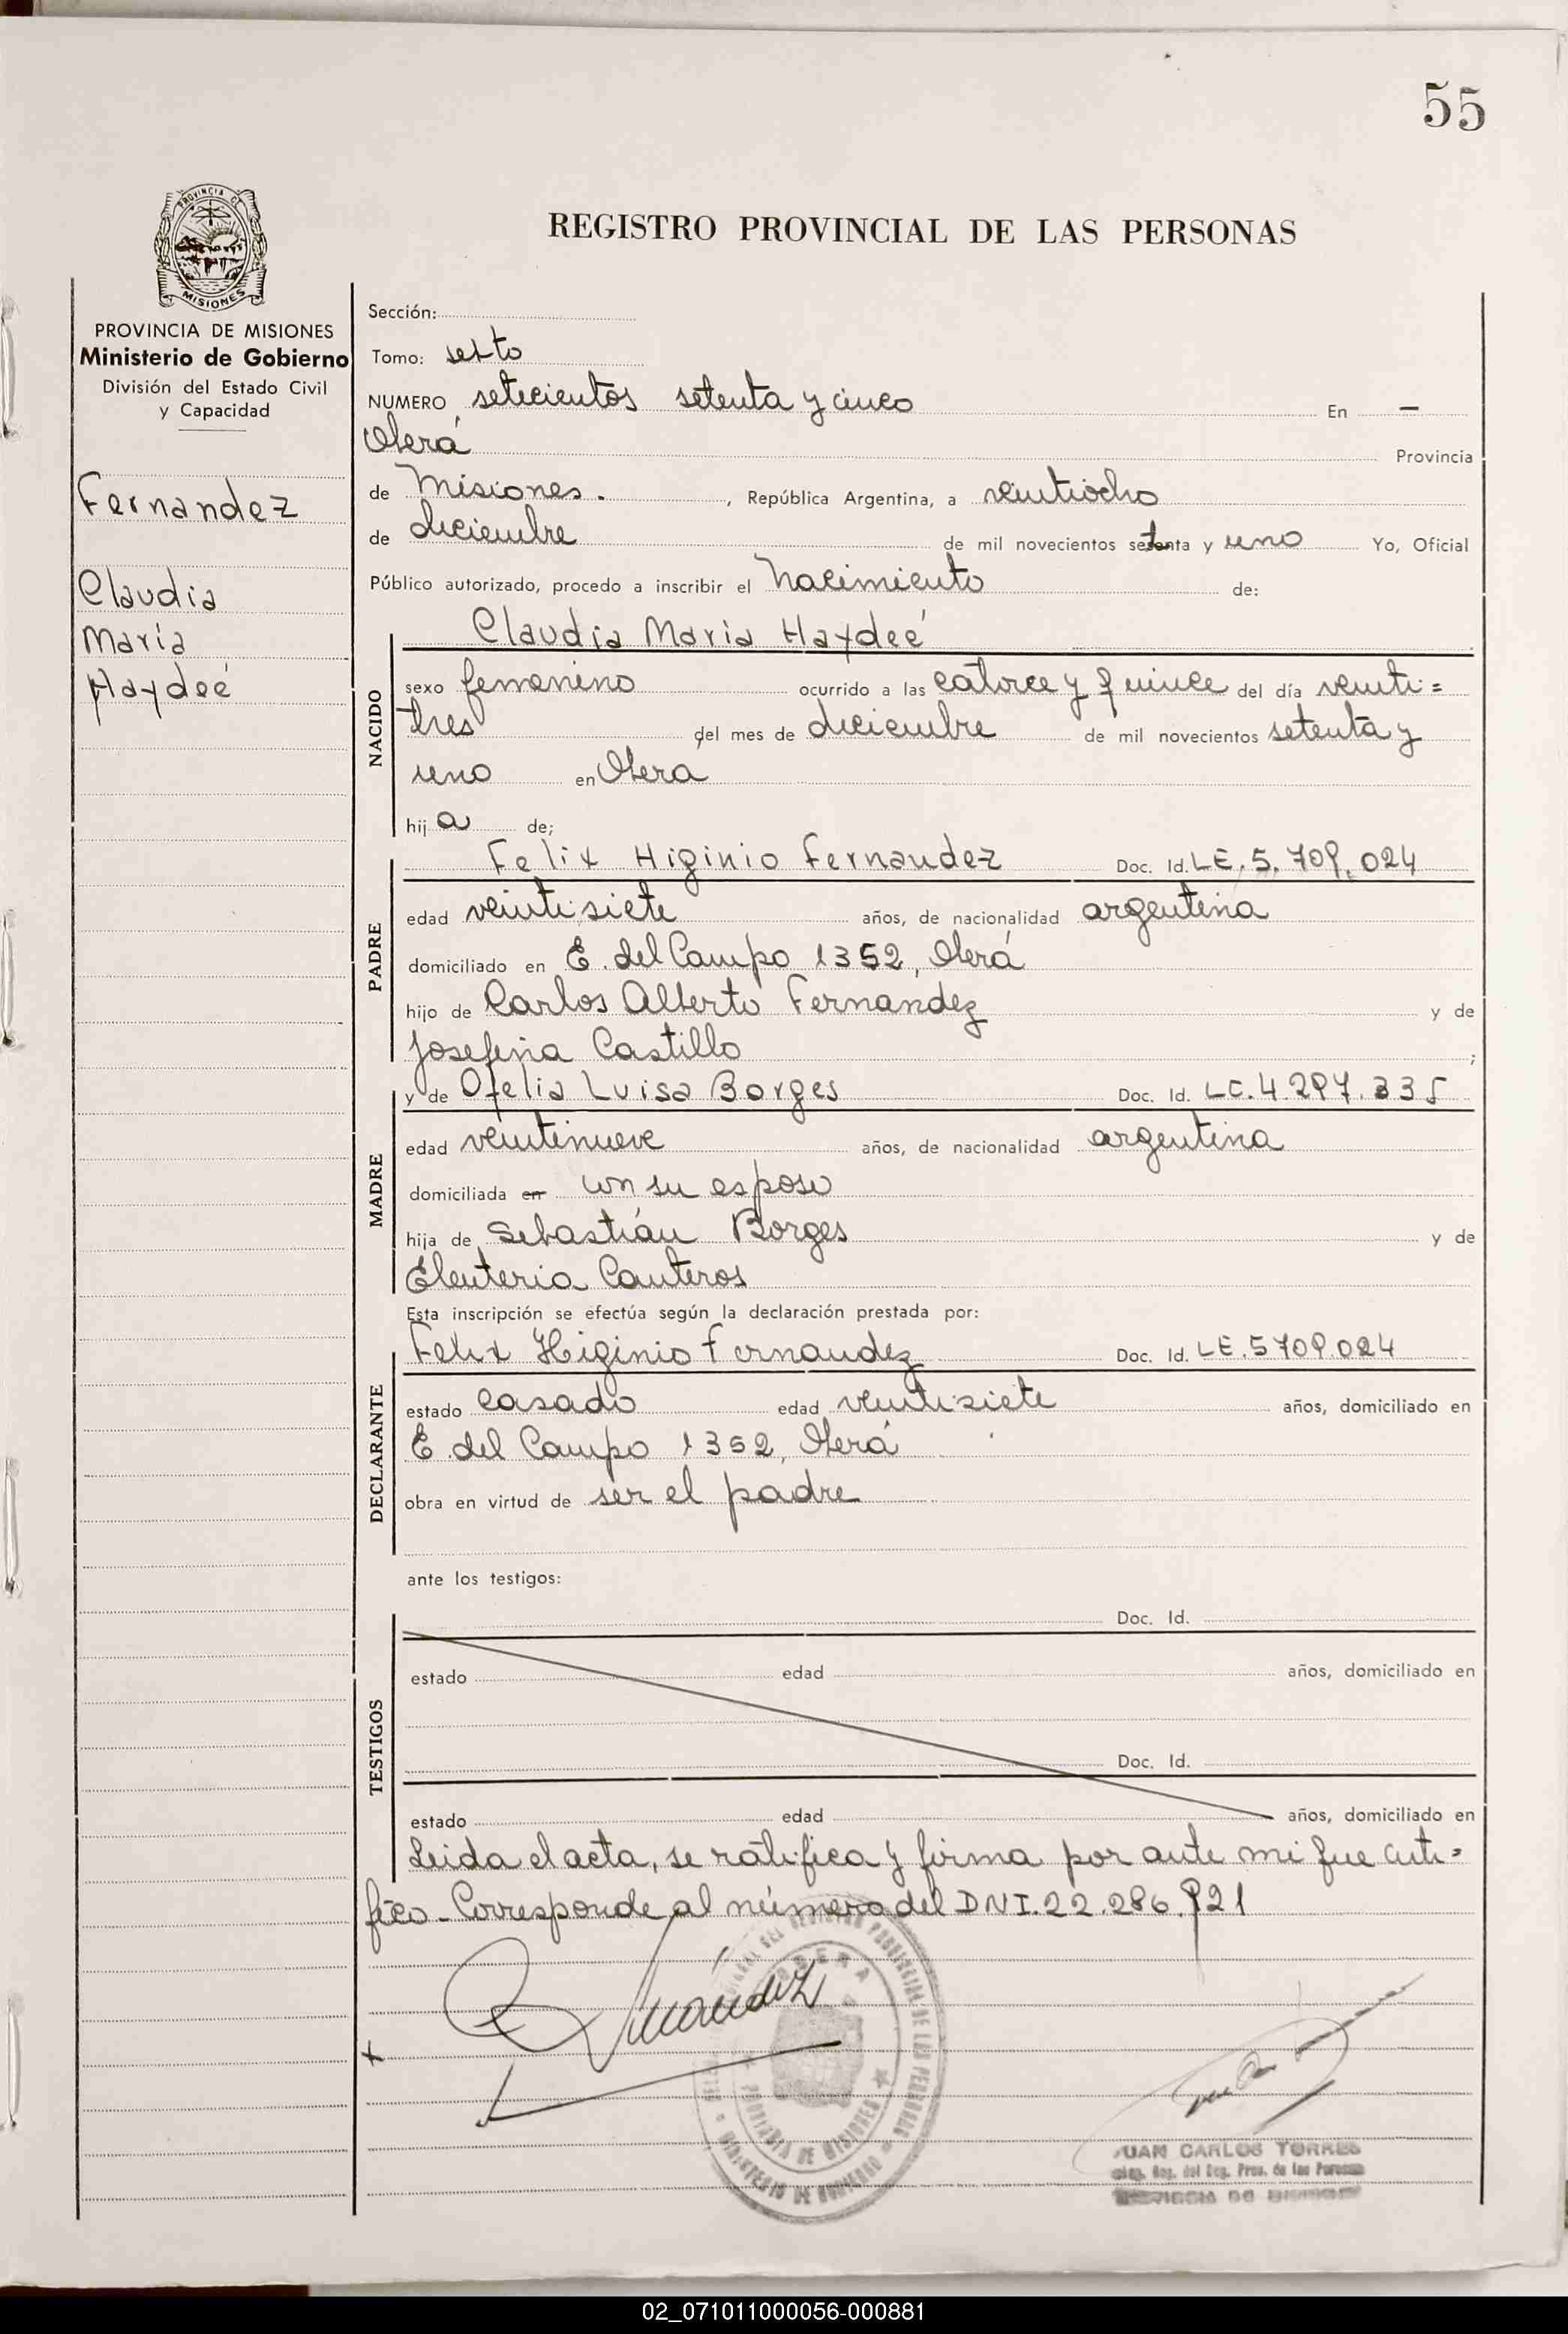 55
PROVINCIA DE
MISIONES
REGISTRO PROVINCIAL DE LAS PERSONAS
PROVINCIA DE MISIONES
Ministerio de Gobierno
División del Estado Civil
y Capacidad
Fernandez
Claudia
María
Haydeé
Sección:
Tomo: sexto
NUMERO setecientos setenta y cinco En —
Oberá Provincia
de Misiones. , República Argentina, a veintiocho
de diciembre de mil novecientos setenta y uno Yo, Oficial
Público autorizado, procedo a inscribir el Nacimiento de:
NACIDO
Claudia Maria Haydeé
sexo femenino ocurrido a las catorce y quince del día veinti=
tres del mes de diciembre de mil novecientos setenta y
uno en Obera
hij a de;
PADRE
Felix Higinio Fernandez Doc. Id. LE. 5. 709. 024
edad veintisiete años, de nacionalidad argentina
domiciliado en E. del Campo 1352, Oberá
hijo de Carlos Alberto Fernandez y de
Josefina Castillo ;
MADRE
y de Ofelia Luisa Borges Doc. Id. LC. 4.297.335
edad veintinueve años, de nacionalidad argentina
domiciliada en con su esposo
hija de Sebastián Borges y de
Eleuteria Canteros
Esta inscripción se efectúa según la declaración prestada por:
DECLARANTE
Felix Higinio Fernandez Doc. Id. LE. 5709.024
estado casado edad veintisiete años, domiciliado en
E. del Campo 1352, Oberá
obra en virtud de ser el padre
ante los testigos:
TESTIGOS
Doc. Id.
estado edad años, domiciliado en
Doc. Id.
estado edad años, domiciliado en
Leida el acta, se ratifica y firma por ante mi que certi=
fico. Corresponde al número del DNI. 22.286.921
Fernández
PROVINCIA DE MISIONES
MINISTERIO DE GOBIERNO
JUAN CARLOS TORRES
Reg. del Reg. Prov. de las Personas
PROVINCIA DE MISIONES
02_071011000056-000881